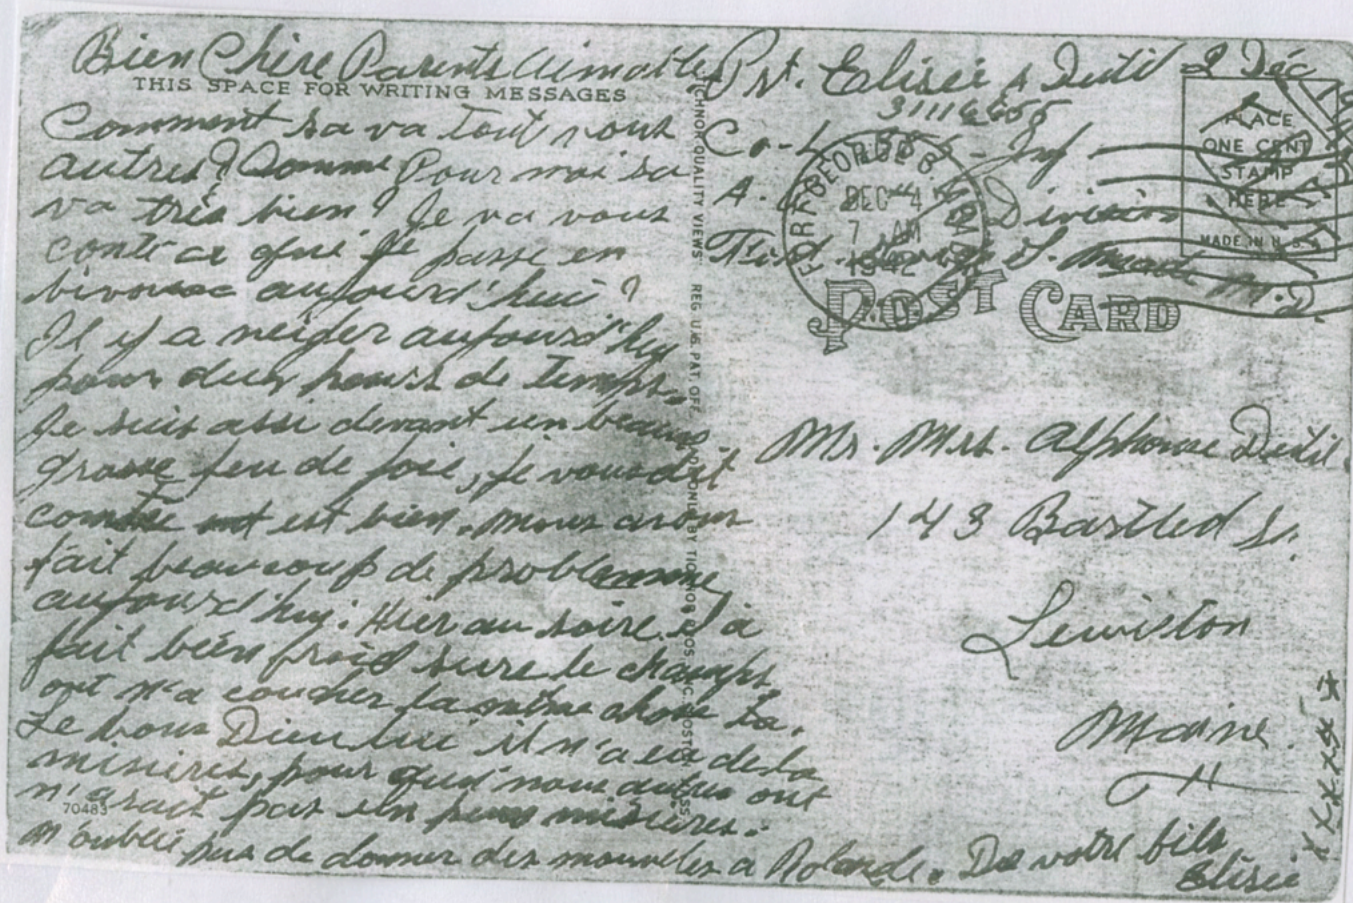 Bien Chère Parents Aimable
THIS SPACE FOR WRITING MESSAGES
Comment sa va tout vous
autres? Comme Pour moi sa
va très bien? Je va vous
conte ce que je passe en
bivouac aujourd'hui?
Il y a neiger aujourd'huy
pour deux hours de temps.
Je suis assi devant un beau
grosse feu de joie, je vous dit
est bien. nous avons
fait beaucoup de problemme
aujourd'huy. Hier au soire il a
fait bien froid sure le champs
ont n'a coucher la même chose la.
Le bons Dieu lui il n'a eu de la
misières, pour quoi nous autres ont
n'arait pas un peux misières.
70483
n'oublié pas de donner des nouvelles a Rolande. De votre fils
Elisée
x x x x x x
TICHNOR QUALITY VIEWS REG. U.S. PAT. OFF. MADE ONLY BY TICHNOR BROS. INC. BOSTON MASS
Pvt. Elisée A Dutil 2 Déc
31116655
Co-L Inf
A. Division
Fort George G. Meade M.D.
FORT GEORGE G MEADE
DEC 4
7 AM
1942
PLACE
ONE CENT
STAMP
HERE
MADE IN U.S.A.
POST CARD
Mr. Mrs. Alphonse Dutil.
143 Bartled St.
Lewiston
Maine.